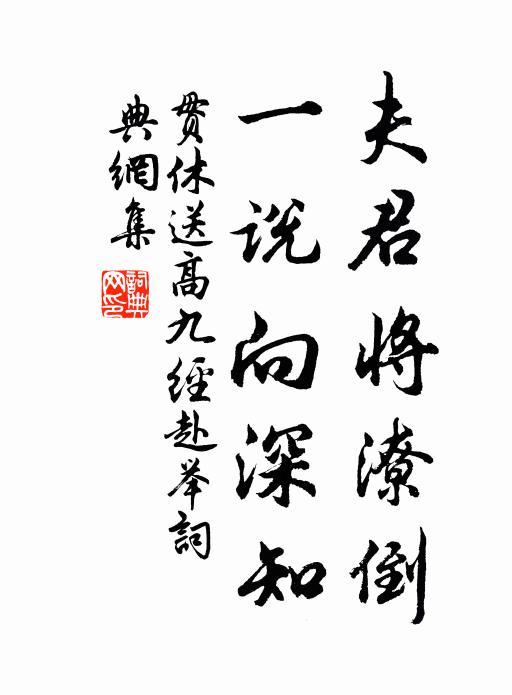 夫君将潦倒
一说向深知
贯休送高九经赴举詞
典網集
詞典
网印